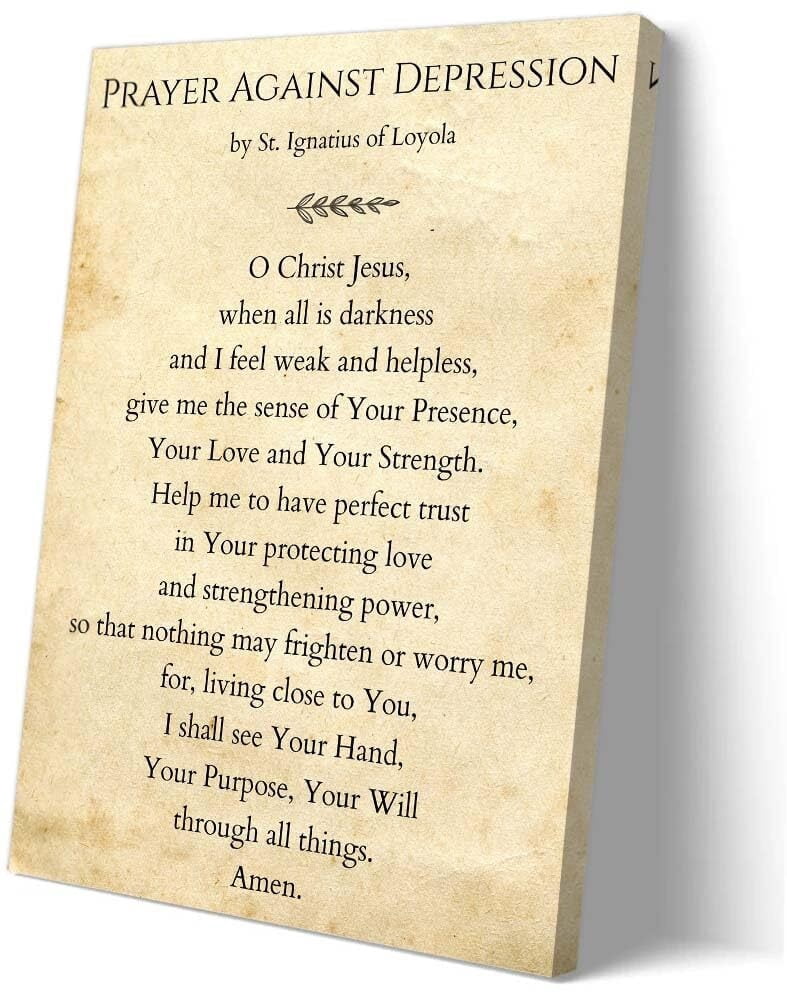 PRAYER AGAINST DEPRESSION
by St. Ignatius of Loyola
O Christ Jesus,
when all is darkness
and I feel weak and helpless,
give me the sense of Your Presence,
Your Love and Your Strength.
Help me to have perfect trust
in Your protecting love
and strengthening power,
so that nothing may frighten or worry me,
for, living close to You,
I shall see Your Hand,
Your Purpose, Your Will
through all things.
Amen.